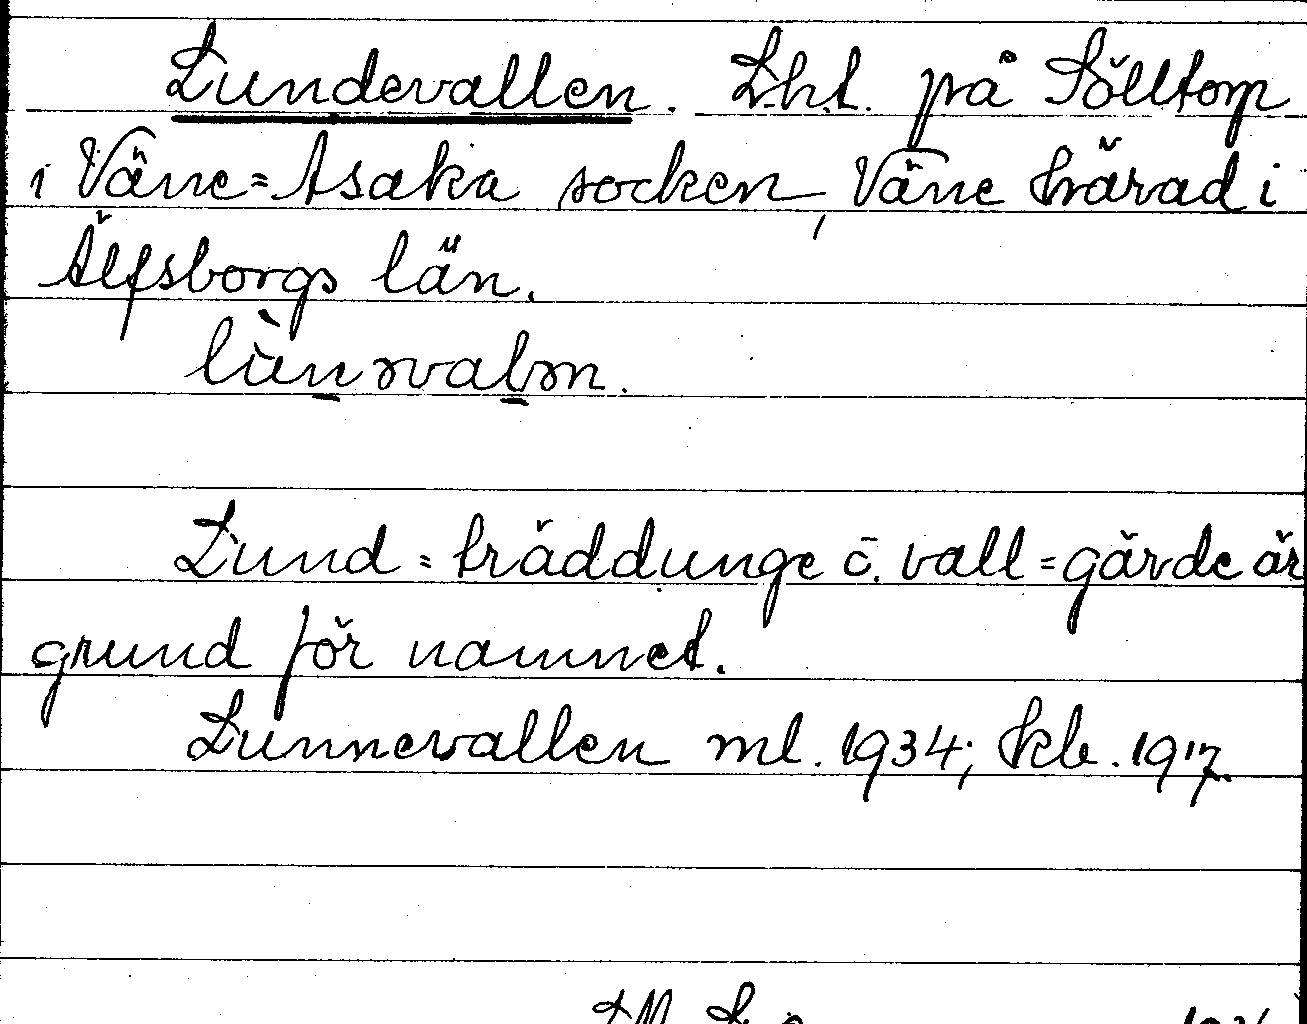 Lundevallen. Lht. på Sölltorp
i Väne=Åsaka socken, Väne härad i
Älfsborgs län.
Lund = träddunge o. vall = gärde är
grund för namnet.
Lunnevallen ml. 1934; skb. 1917.